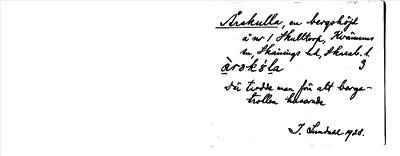 Årekulla, en bergshöjd
å nr 1 Skulltorp, Kvänums
sn Skånings hd, Skarab. l.
àrekö̀la 3
Där trodde man för att berga-
trollen huserade
J. Lundahl 1928.